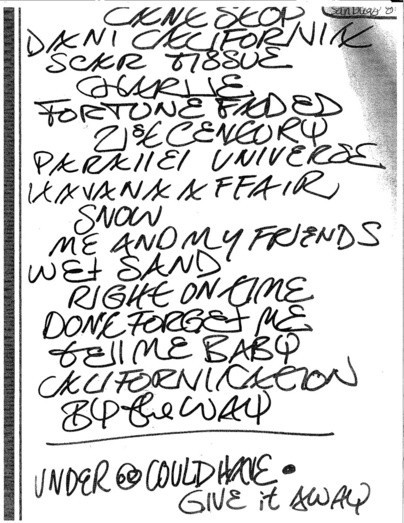 San Diego
CAN'T STOP
DANI CALIFORNIA
SCAR TISSUE
CHARLIE
FORTUNE FADED
21st CENTURY
PARALLEl UNIVERSE
HAVANA AFFAIR
SNOW
ME AND MY FRIENDS
WEt SAND
RIGHT ON tIME
DONt FORGEt ME
tEll ME BABY
CALIFORNICATION
BY the WAY
UNDER OR COULD HAVE •
GIVE it AWAY